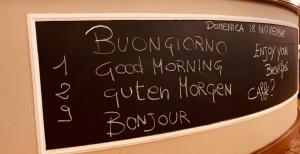 DOMENICA 18 NOVEMBRE
BUONGIORNO
ENJOY YOUR
1 GOOD MORNING
BREAKFAST
2 GUTEN MORGEN
CAFFÈ?
BONJOUR